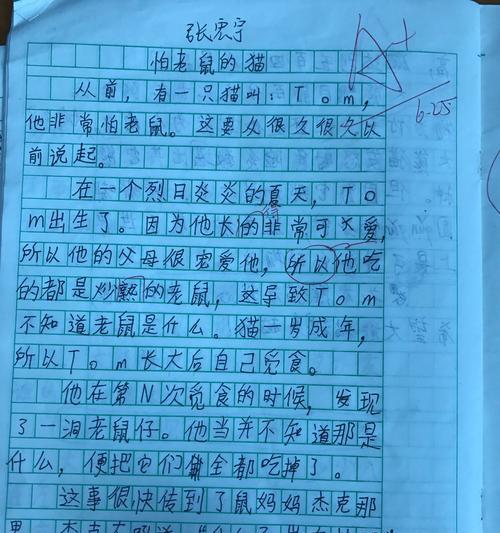 张宸宁
怕老鼠的猫
A+
从前，有一只猫叫：Tom，
6.25
他非常怕老鼠。这要从很久很久以
前说起。
在一个烈日炎炎的夏天，To
m出生了。因为他长的得非常可爱，
所以他的父母很宠爱他，所以他吃
的都是炒熟的老鼠，这导致Tom
不知道老鼠是什么。猫一岁成年，
所以Tom长大后自己觅食。
他在第N次觅食的时候，发现
了一洞老鼠仔。他当并不知道那是
什么，便把它们全都吃掉了。
这事很快传到了鼠妈妈杰克那